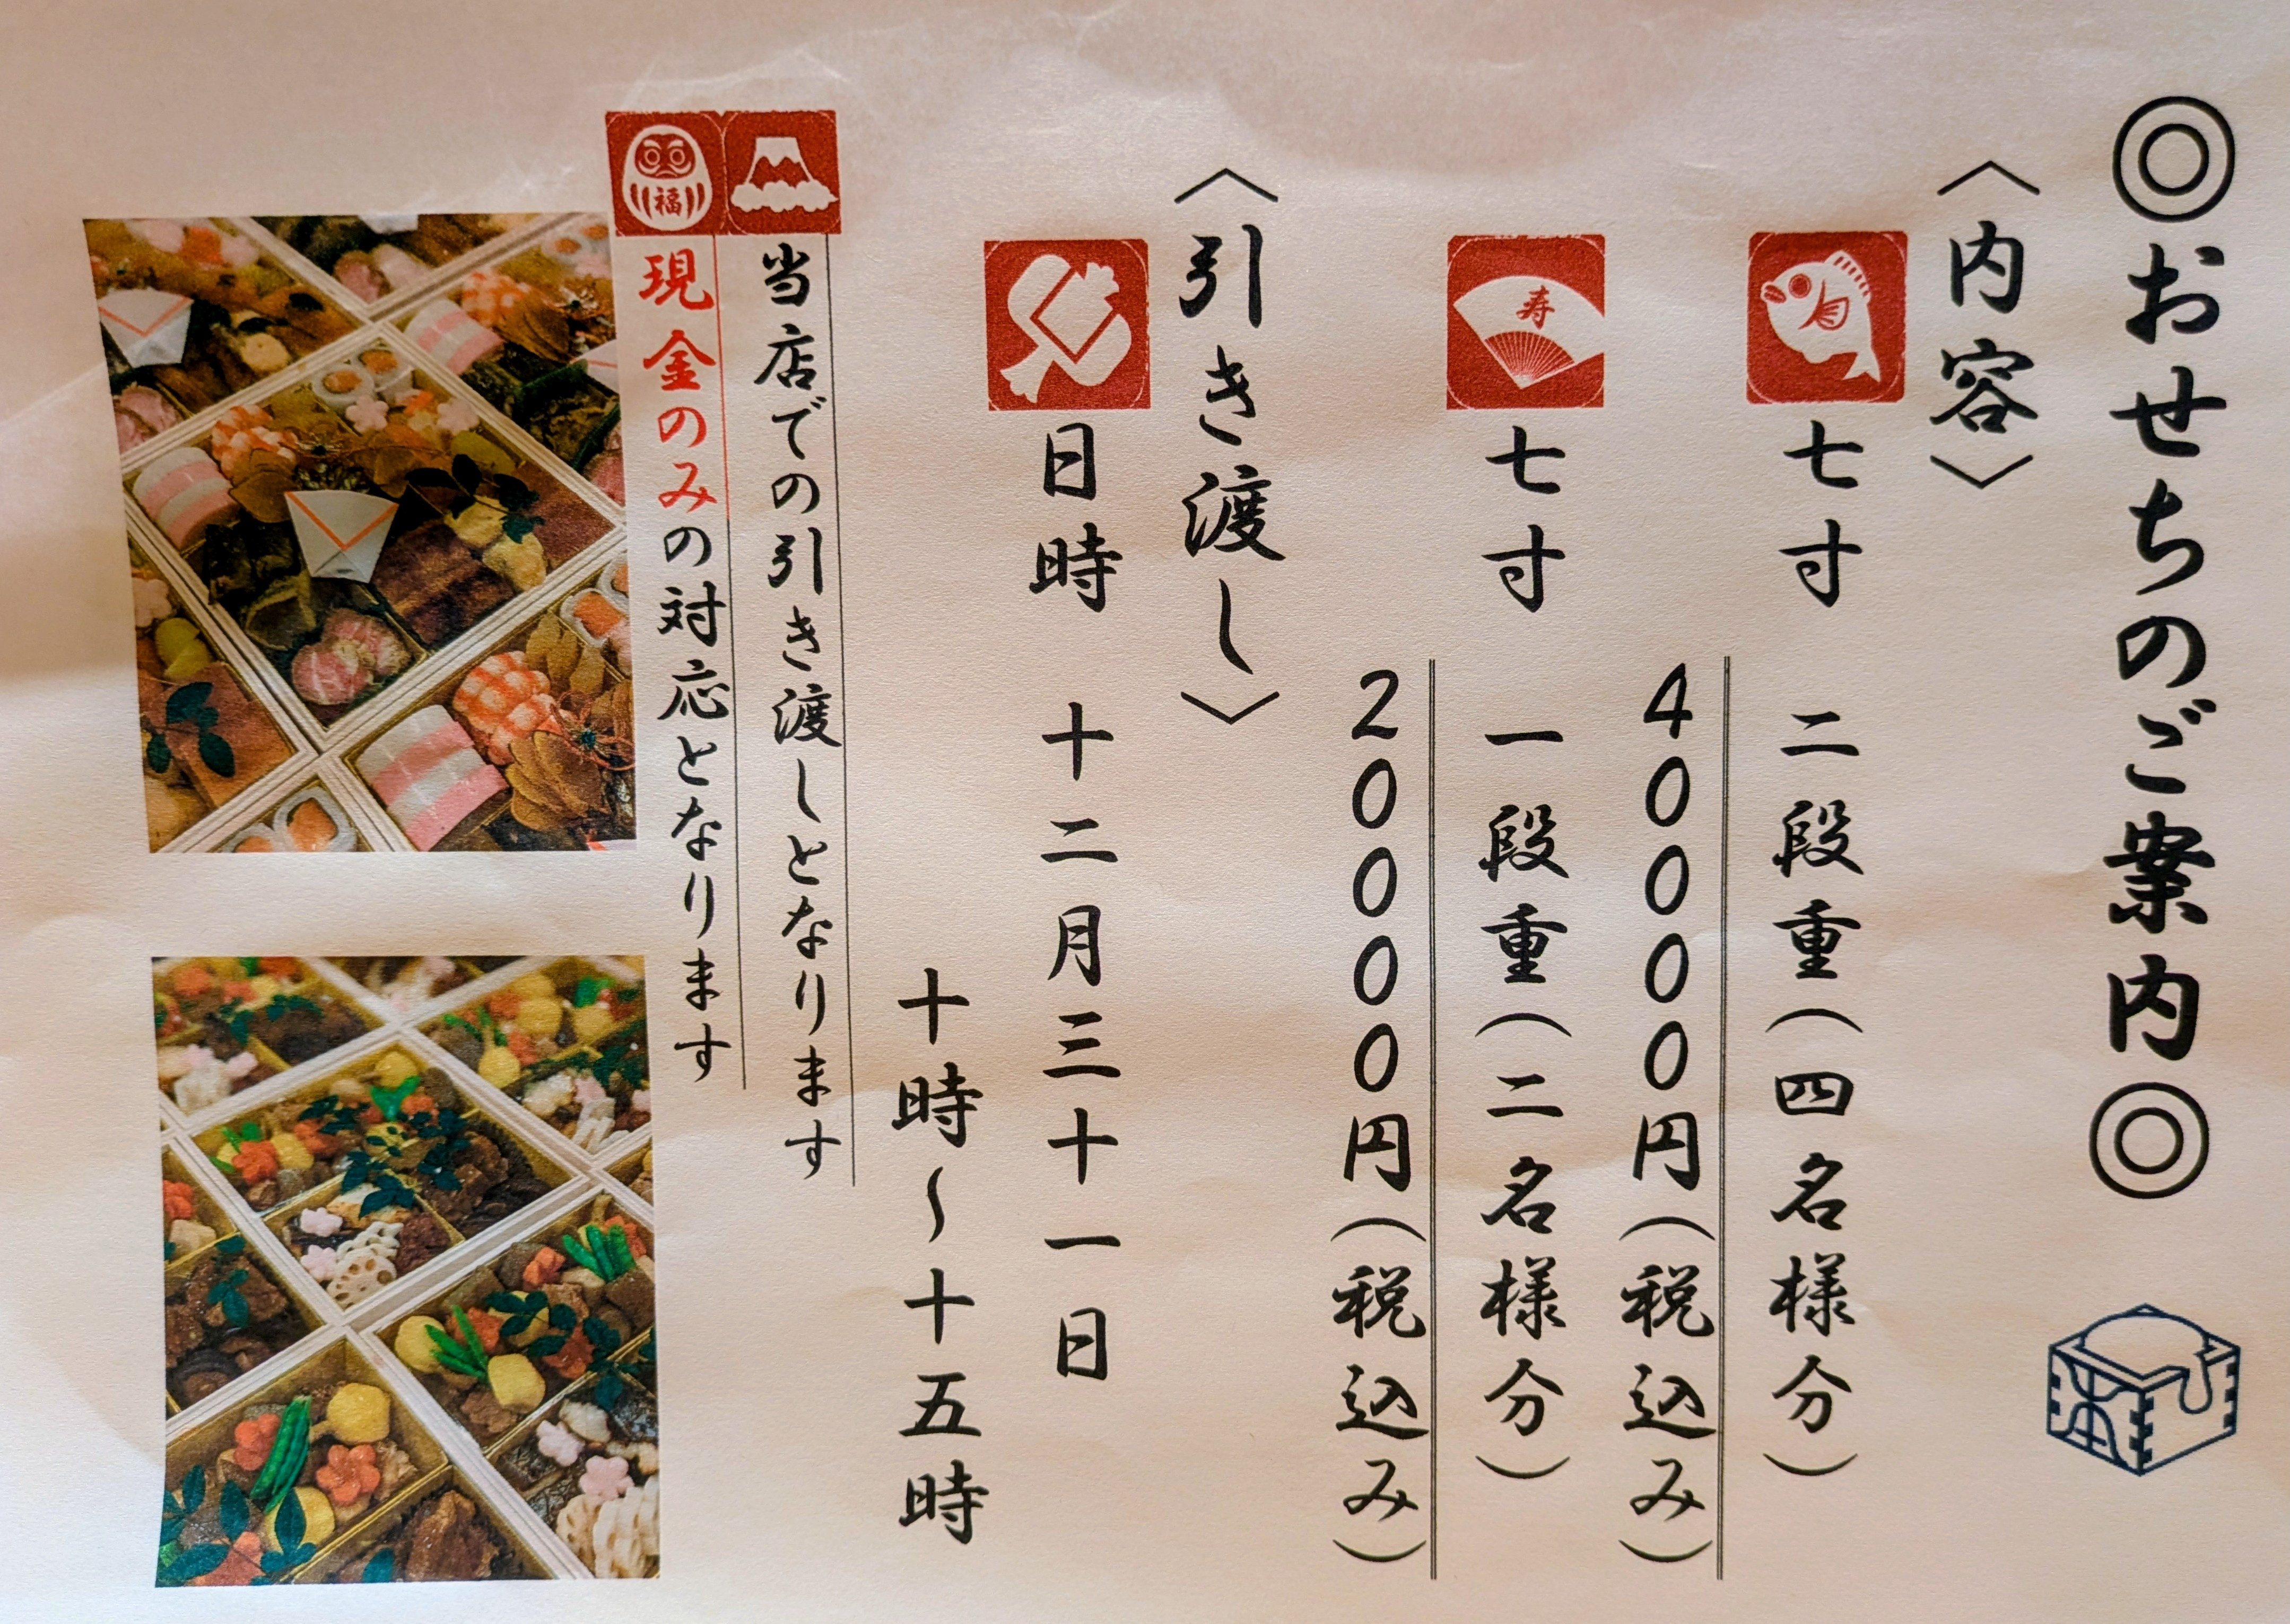 ◎おせちのご案内◎
〈内容〉
七寸 二段重(四名様分)
40000円(税込み)
寿
七寸 一段重(二名様分)
20000円(税込み)
〈引き渡し〉
日時 十二月三十一日
十時~十五時
当店での引き渡しとなります
福
現金のみの対応となります